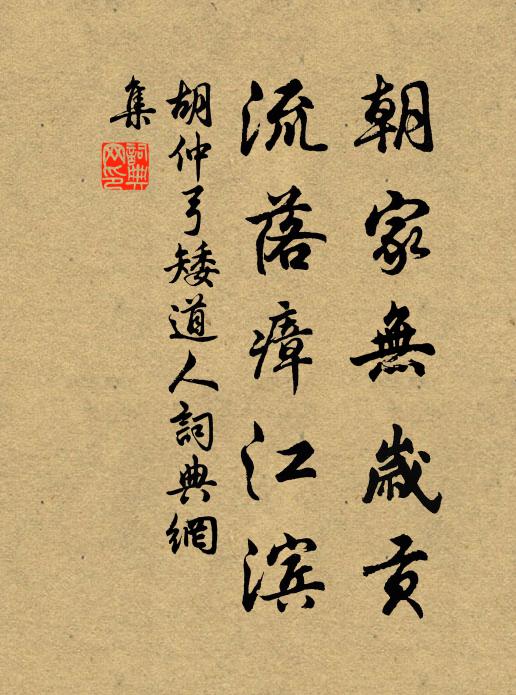 朝家無歲貢
流落瘴江滨
胡仲弓矮道人詞典網
集
詞典
网印